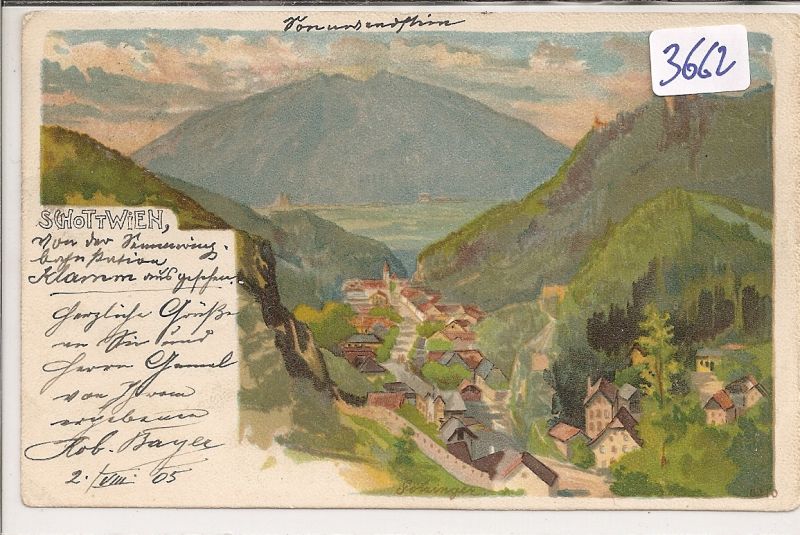 Sonnwendstein
3662
SCHOTTWIEN,
von der Semmering-
bahnstation
Klamm aus gesehen.
herzliche Grüße
an Sie und
Herrn Gemal
von Ihrem
ergebenen
Rob. Bayer
2./VIII. 05